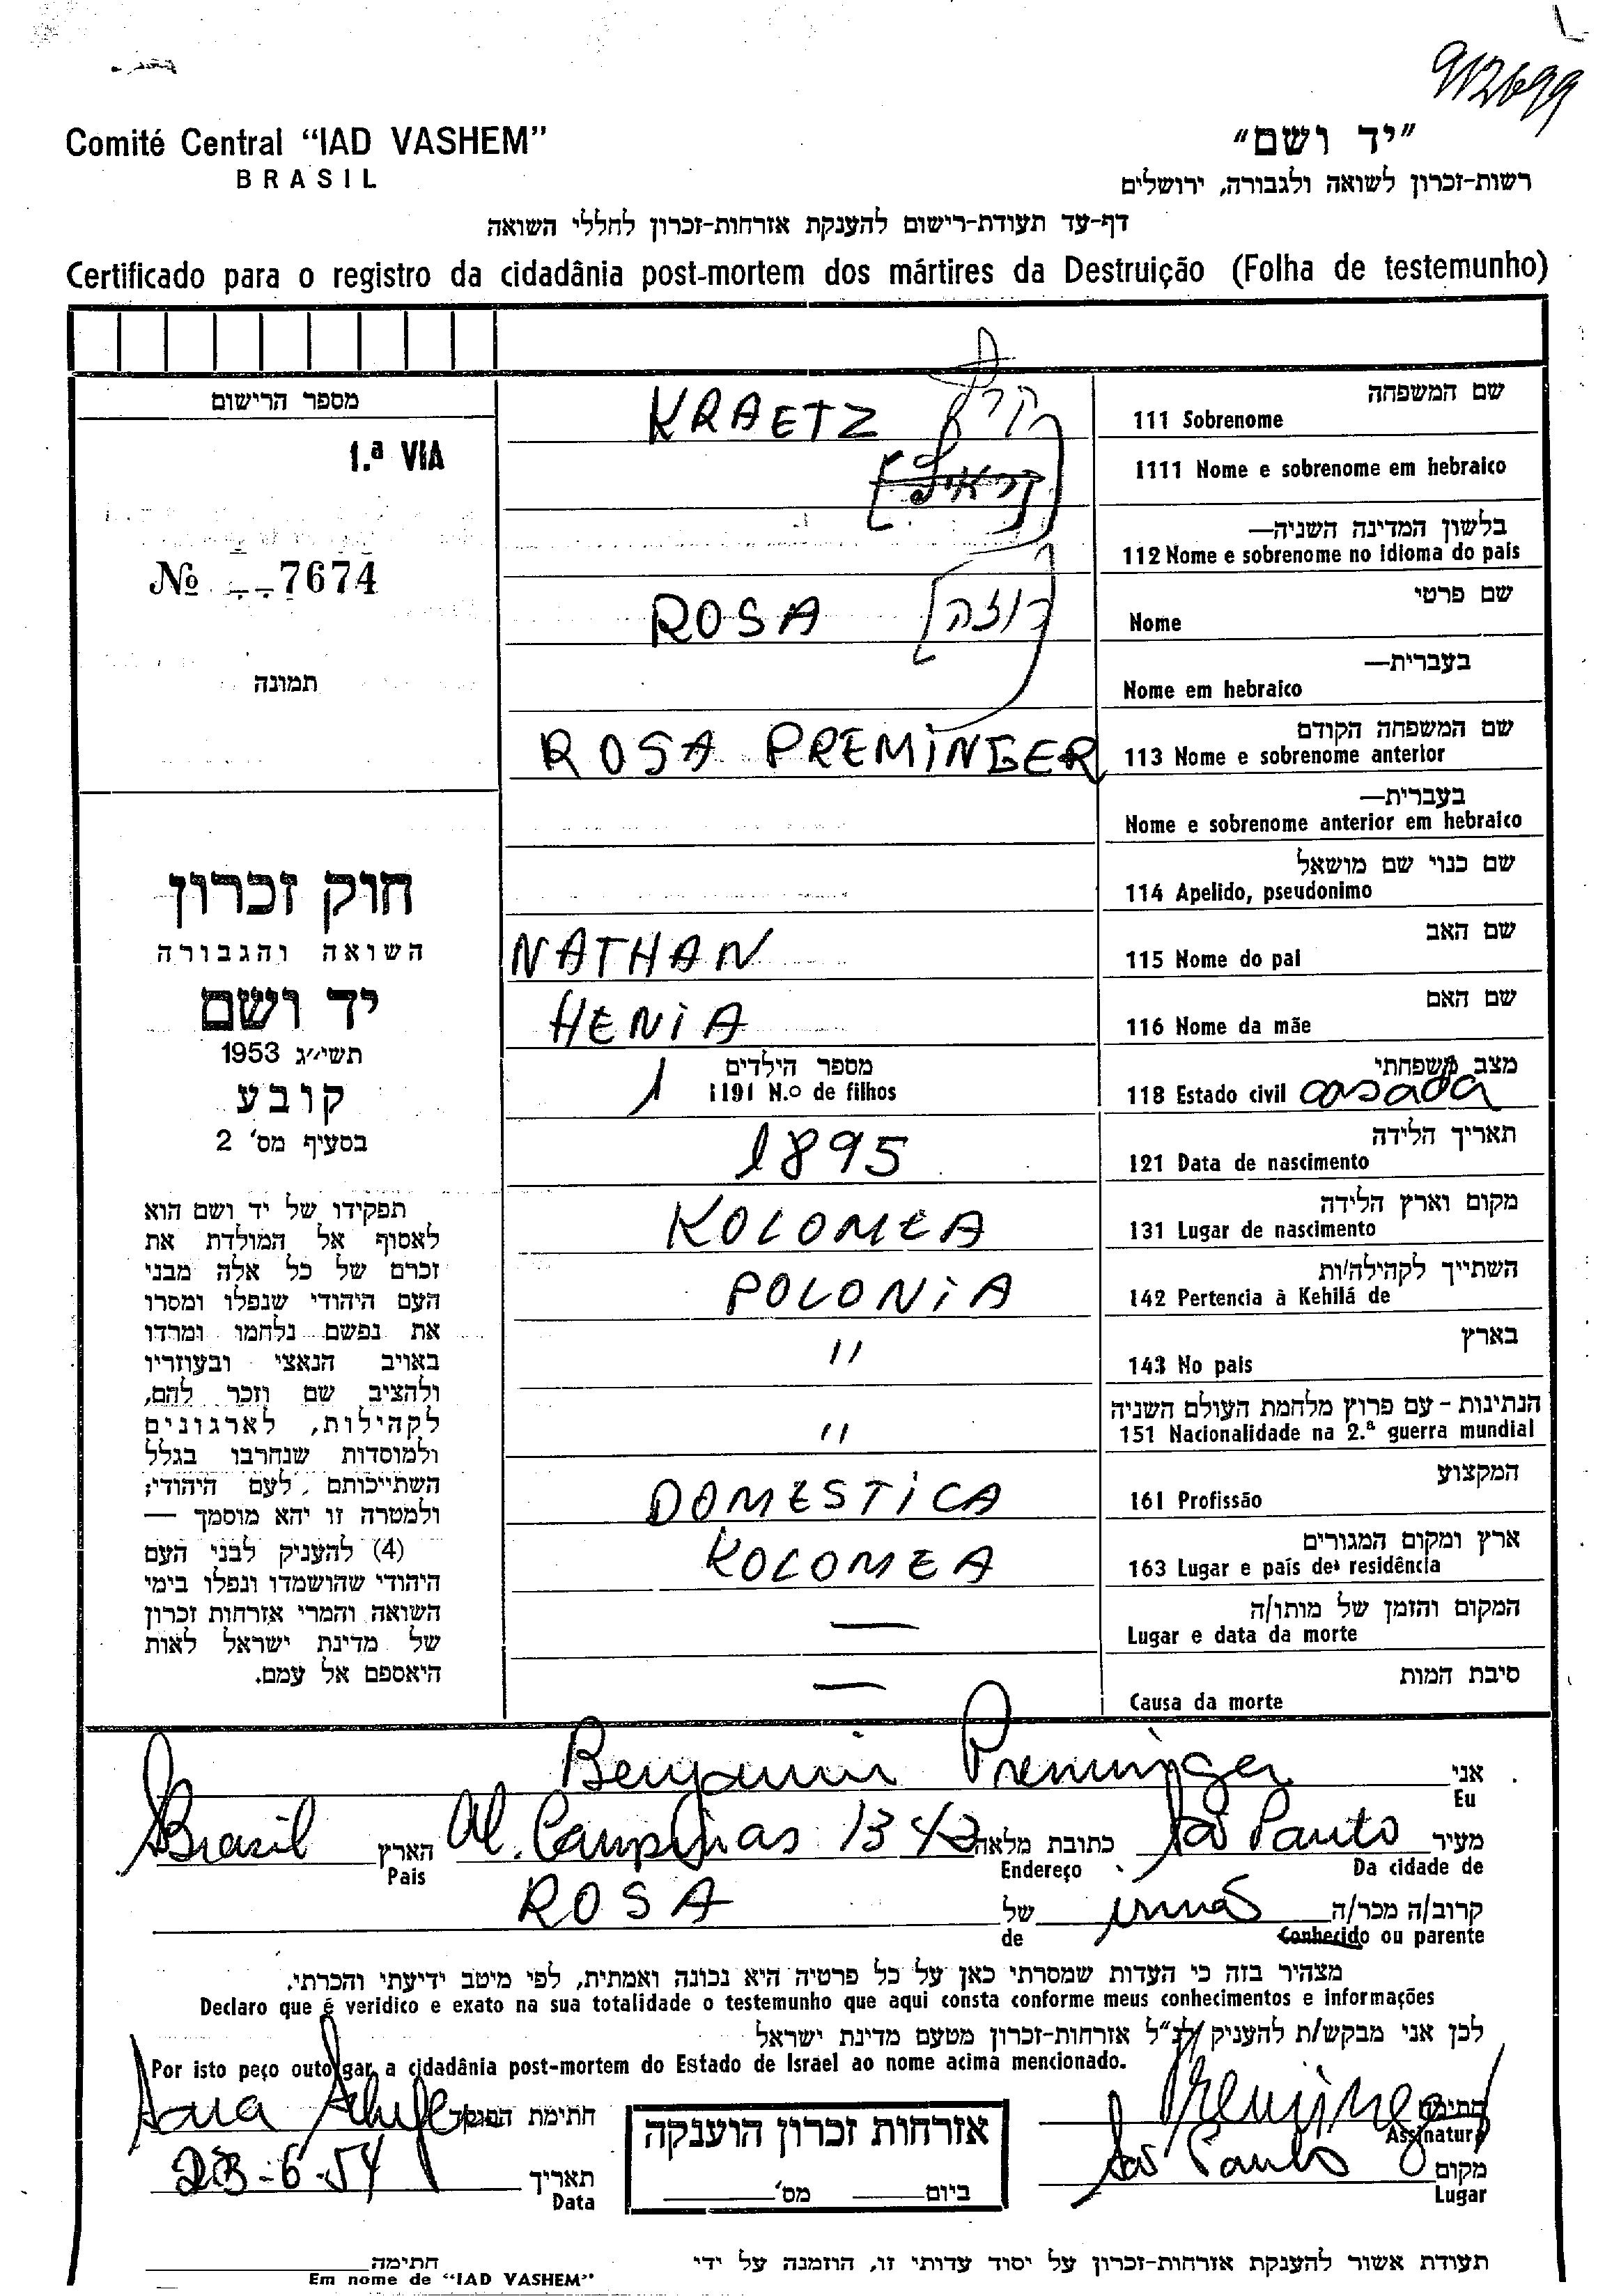 912699
Comité Central "IAD VASHEM"
BRASIL
"יד ושם"
רשות-זכרון לשואה ולגבורה, ירושלים
דף-עד תעודת-רישום להענקת אזרחות-זכרון לחללי השואה
Certificado para o registro da cidadânia post-mortem dos mártires da Destruição (Folha de testemunho)
מספר הרישום
1.ª VIA
№ 7674
תמונה
חוק זכרון
השואה והגבורה
יד ושם
תשי״ג 1953
קובע
בסעיף מס׳ 2
תפקידו של יד ושם הוא
לאסוף אל המולדת את
זכרם של כל אלה מבני
העם היהודי שנפלו ומסרו
את נפשם נלחמו ומרדו
באויב הנאצי ובעוזריו
ולהציב שם וזכר להם,
לקהילות, לארגונים
ולמוסדות שנחרבו בגלל
השתייכותם לעם היהודי;
ולמטרה זו יהא מוסמך —
(4) להעניק לבני העם
היהודי שהושמדו ונפלו בימי
השואה והמרי אזרחות זכרון
של מדינת ישראל לאות
היאספם אל עמם.
שם המשפחה
111 Sobrenome KRAETZ
1111 Nome e sobrenome em hebraico
בלשון המדינה השניה—
112 Nome e sobrenome no idioma do país
שם פרטי
Nome ROSA [רוזה]
בעברית—
Nome em hebraico
שם המשפחה הקודם
113 Nome e sobrenome anterior ROSA PREMINGER
בעברית—
Nome e sobrenome anterior em hebraico
שם כנוי שם מושאל
114 Apelido, pseudonimo
שם האב
115 Nome do pai NATHAN
שם האם
116 Nome da mãe HENIA
מצב משפחתי
118 Estado civil casada
מספר הילדים
1191 N.o de filhos 1
תאריך הלידה
121 Data de nascimento 1895
מקום וארץ הלידה
131 Lugar de nascimento KOLOMEA
השתייך לקהילה/ות
142 Pertencia à Kehilá de POLONIA
בארץ
143 No pais "
הנתינות - עם פרוץ מלחמת העולם השניה
151 Nacionalidade na 2.ª guerra mundial "
המקצוע
161 Profissão DOMESTICA
ארץ ומקום המגורים
163 Lugar e país de residência KOLOMEA
המקום והזמן של מותו/ה
Lugar e data da morte —
סיבת המות
Causa da morte —
אני Benjamin Preminger
Eu
מעיר São Paulo כתובת מלאה Al. Campinas 1343 הארץ Brasil
Da cidade de Endereço Pais
קרוב/ה מכר/ה irmão של ROSA
Conhecido ou parente de
מצהיר בזה כי העדות שמסרתי כאן על כל פרטיה היא נכונה ואמתית, לפי מיטב ידיעתי והכרתי.
Declaro que é veridico e exato na sua totalidade o testemunho que aqui consta conforme meus conhecimentos e informações
לכן אני מבקש/ת להעניק לנ"ל אזרחות-זכרון מטעם מדינת ישראל
Por isto peço outolgar a cidadânia post-mortem do Estado de Israel ao nome acima mencionado.
חתימה Preminger
Assinatura
חתימת הפוקד
מקום São Paulo
Lugar
תאריך
Data
אזרחות זכרון הוענקה
ביום מס׳
תעודת אשור להענקת אזרחות-זכרון על יסוד עדותי זו, הוזמנה על ידי
חתימה
Em nome de "IAD VASHEM"